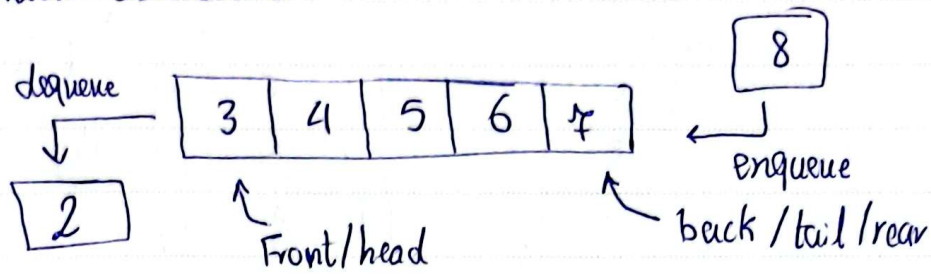 8
dequeue
3 4 5 6 7
enqueue
2
Front/head
back/tail/rear